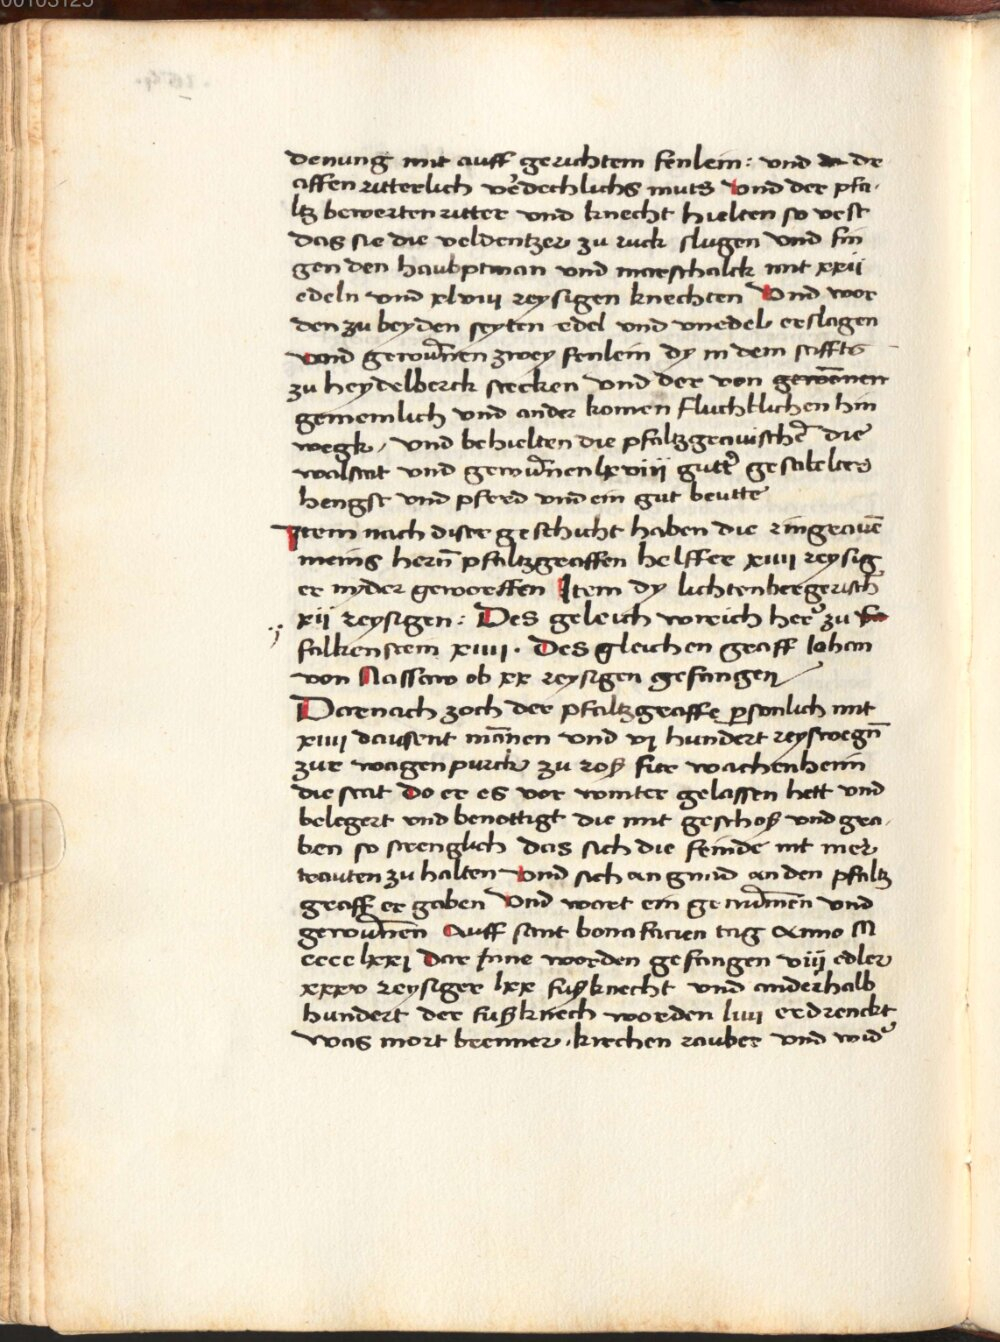 00103125
denung mit auff gerichtem fenlein: und de
affen ritterlich v'dechlichs muts Vnd der pfa-
ltz bewerten ritter vnd knecht hielten so vest
das sie die veldentzer zu ruck slugen vnd fin
gen den haubptman vnd marschalck mit xxii
edeln vnd xlviii reysigen knechten Vnd wor
den zu beyden seyten edel vnd vnedel erslagen
vnd gewūnen zwey fenlein dy in dem stiffts
zu heydelberck stecken vnd der von
gemeinlich vnd ander komen fluchtlichen hin
wegk, vnd behielten die pfaltzgrauischē die
walstat vnd gewūnen lxviii gutt' gesatelter
hengst vnd pferd vnd ein gut beutte
Item nach diser geschicht haben die ringrauē
meins hern̄ pfaltzgraffen helffer xiiii reysig
er nyder geworffen Item dy lichtenbergerisch̄
xii reysigen: Des geleich wirich her' zu
falkenstein xiiii. Des gleichen graff Iohan
von Nassaw ob xx reysigen gefangen
Darnach zoch der pfaltzgraffe p̱sonlich mit
xiiii dausent mānen vnd vi hundert reyswegn̄
zur wagenpurck zu roß fur wachenheim
die stat Do er es vor winter gelassen hett vnd
belegert vnd benottigt die mit geschoß vnd gra-
ben so strenglich das sich die feinde nit mer
trauten zu halten Vnd sich an gnad an den pfaltz
graff er gaben Vnd wart ein genūmen vnd
gewūnen Auff sant bonifacien tag Anno M
cccc lxxi Dar Inne worden gefangen viii edler
xxxv reysiger lxx fußknecht vnd anderhalb
hundert der fußknech worden liiii erdrenckt
was mort brenner, kirchen rauber vnd wid'